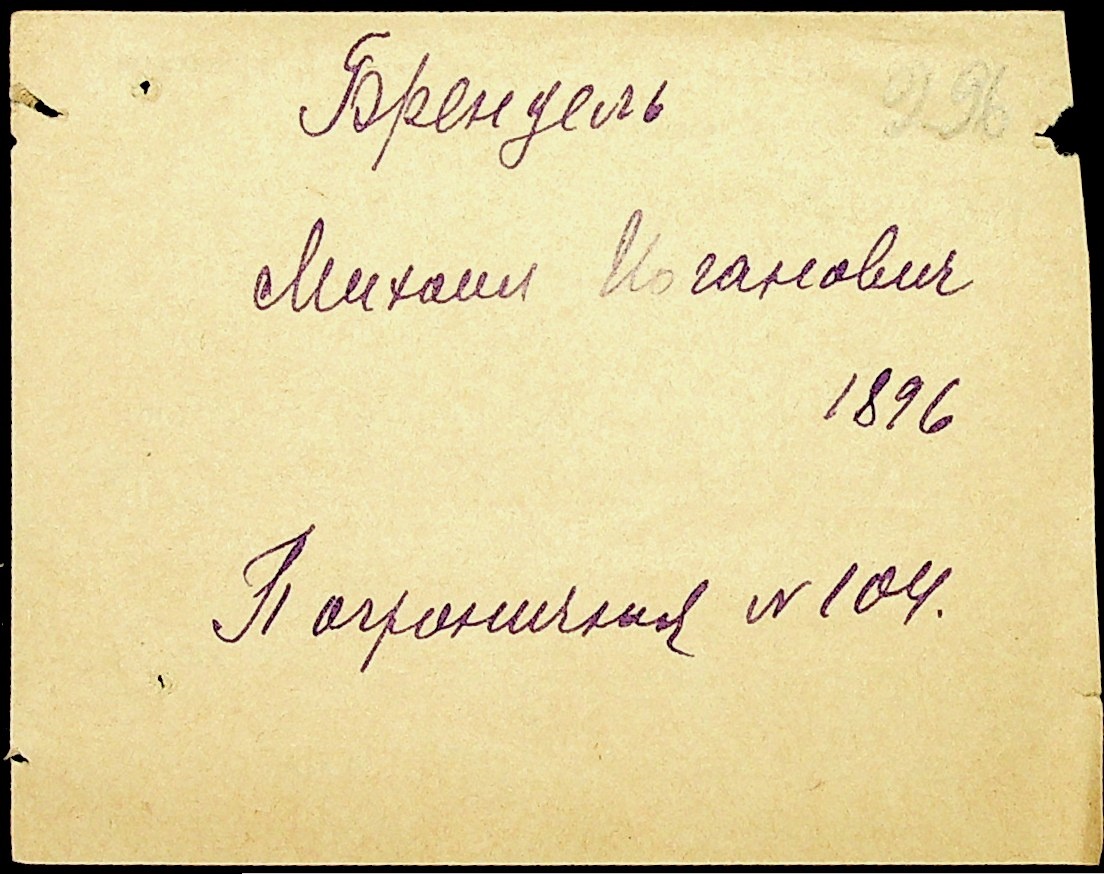 Брендель
Михаил Иоганович
1896
Пограничная № 104.